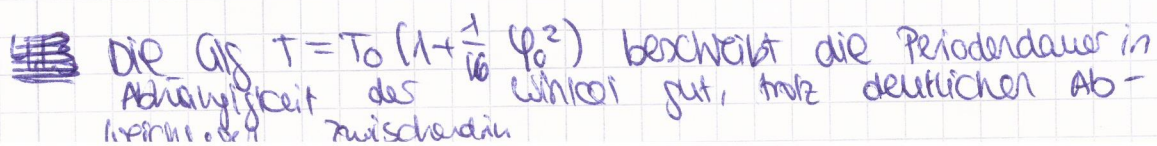 Die Glg T = T₀ (1 + 1/16 φ₀²) beschreibt die Periodendauer in
Abhängigkeit des Winkel gut, trotz deutlichen Ab-
weichungen zwischendrin